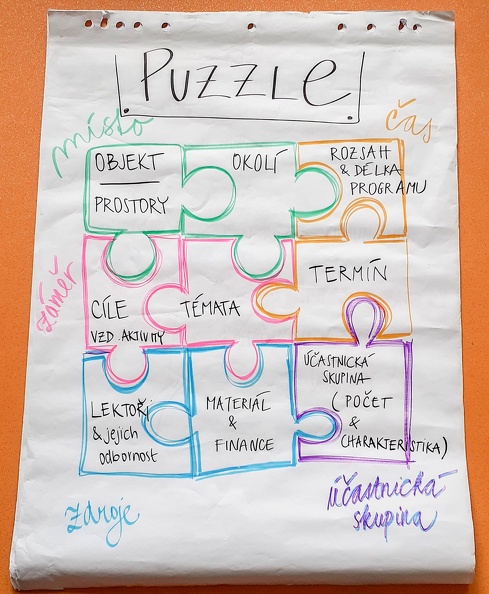 PUZZLE
místo
čas
OBJEKT
PROSTORY
OKOLÍ
ROZSAH
& DÉLKA
PROGRAMU
záměr
CÍLE
VZD. AKTIVITY
TÉMATA
TERMÍN
LEKTOŘI
& jejich
odbornost
MATERIÁL
&
FINANCE
ÚČASTNICKÁ
SKUPINA
(POČET
&
CHARAKTERISTIKA)
zdroje
účastnická
skupina